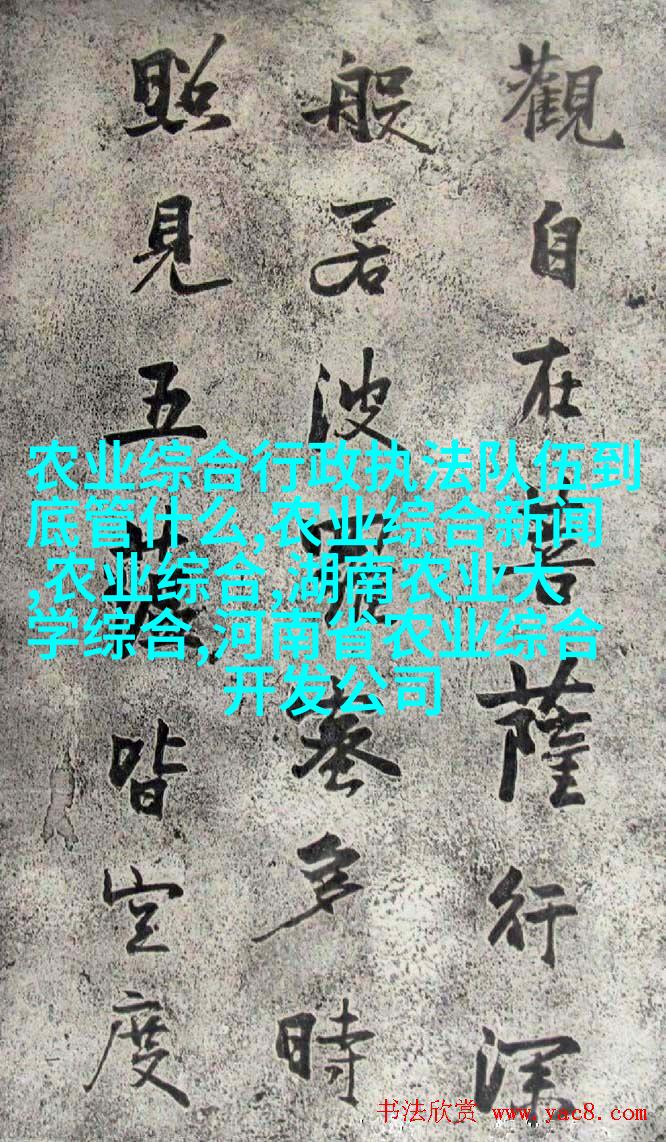 觀自在菩薩行深
般若波羅蜜多時
照見五蘊皆空度
农业综合行政执法队伍到
底管什么,农业综合新闻
,农业综合,湖南农业大
学综合,河南省农业综合
开发公司
书法欣赏 www.yac8.com